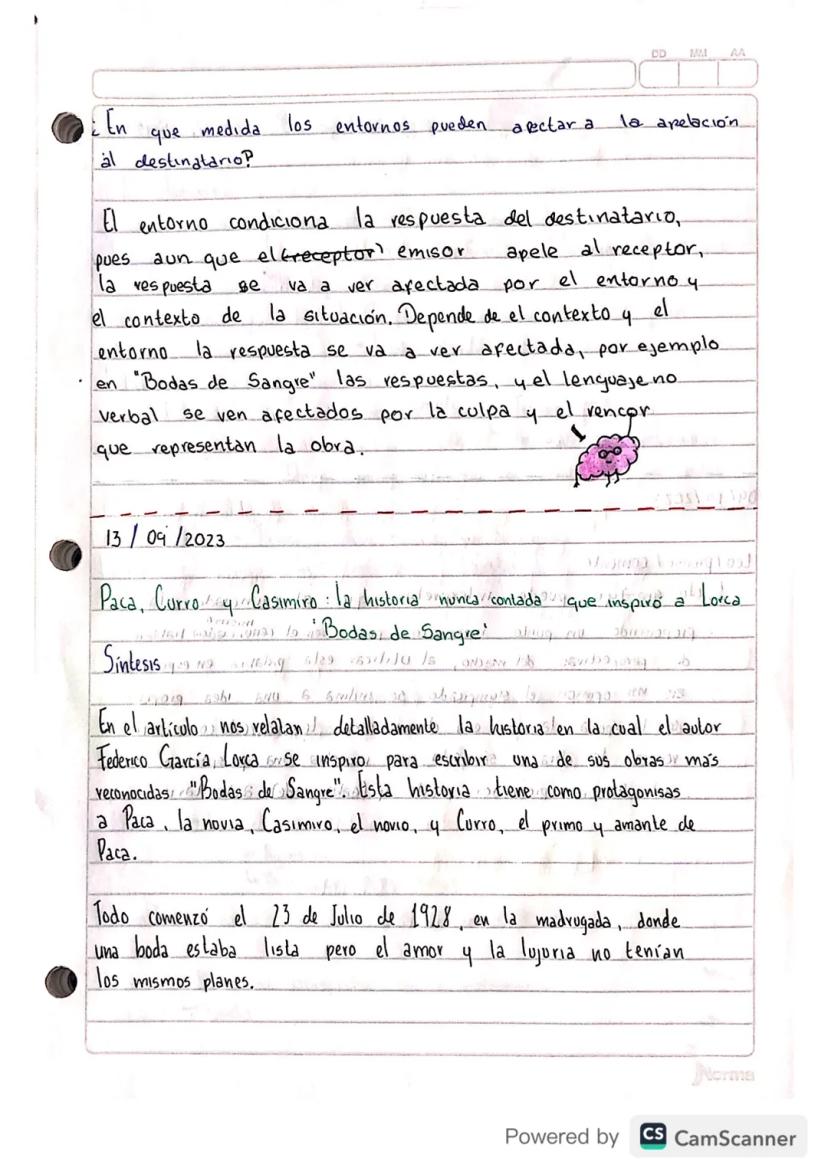 DD MM AA
¿En que medida los entornos pueden afectar a la apelación
al destinatario?
El entorno condiciona la respuesta del destinatario,
pues aun que el (receptor) emisor apele al receptor,
la respuesta se va a ver afectada por el entorno y
el contexto de la situación. Depende de el contexto y el
entorno la respuesta se va a ver afectada, por ejemplo
en "Bodas de Sangre" las respuestas, y el lenguaje no
verbal se ven afectados por la culpa y el rencor
que representan la obra.
13/09/2023
Paca, Curro y Casimiro: la historia nunca contada que inspiró a Lorca
'Bodas de Sangre'
Síntesis
En el artículo nos relatan detalladamente la historia en la cual el autor
Federico García Lorca se inspiro para escribir una de sus obras más
reconocidas "Bodas de Sangre". Esta historia tiene como protagonisas
a Paca, la novia, Casimiro, el novio, y Curro, el primo y amante de
Paca.
Todo comenzó el 23 de Julio de 1928, en la madrugada, donde
una boda estaba lista pero el amor y la lujuria no tenían
los mismos planes.
Norma
Powered by CS CamScanner